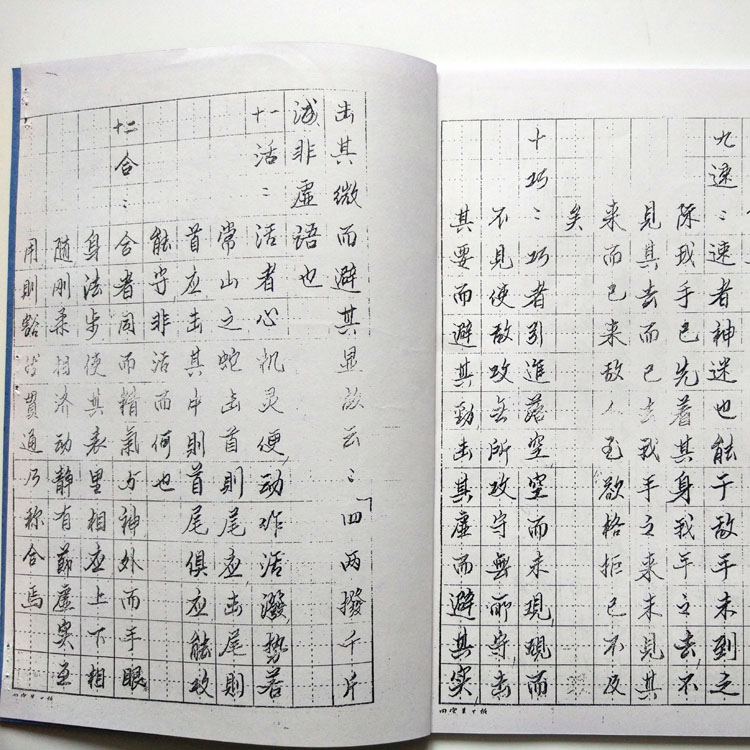 九速：速者神迷也能于敌手未到之
际我手已先着其身我手之去不
見其去而已去我手之来未見其
来而已来敌人至欲格拒已不及
矣
十巧：巧者引進落空空而未現現而
不見使敌攻无所攻守無所守击
其要而避其勁击其虚而避其实
击其微而避其显故云：「四两撥千斤
诚非虚语也
十一活：活者心机灵便动作活潑势若
常山之蛇击首則尾应击尾則
首应击其中則首尾俱应能攻
能守非活而何也
十二合：合者同而精氣与神外而手眼
身法步使其表里相应上下相
随刚柔相济动静有節虚实互
用則豁然貫通乃称合焉